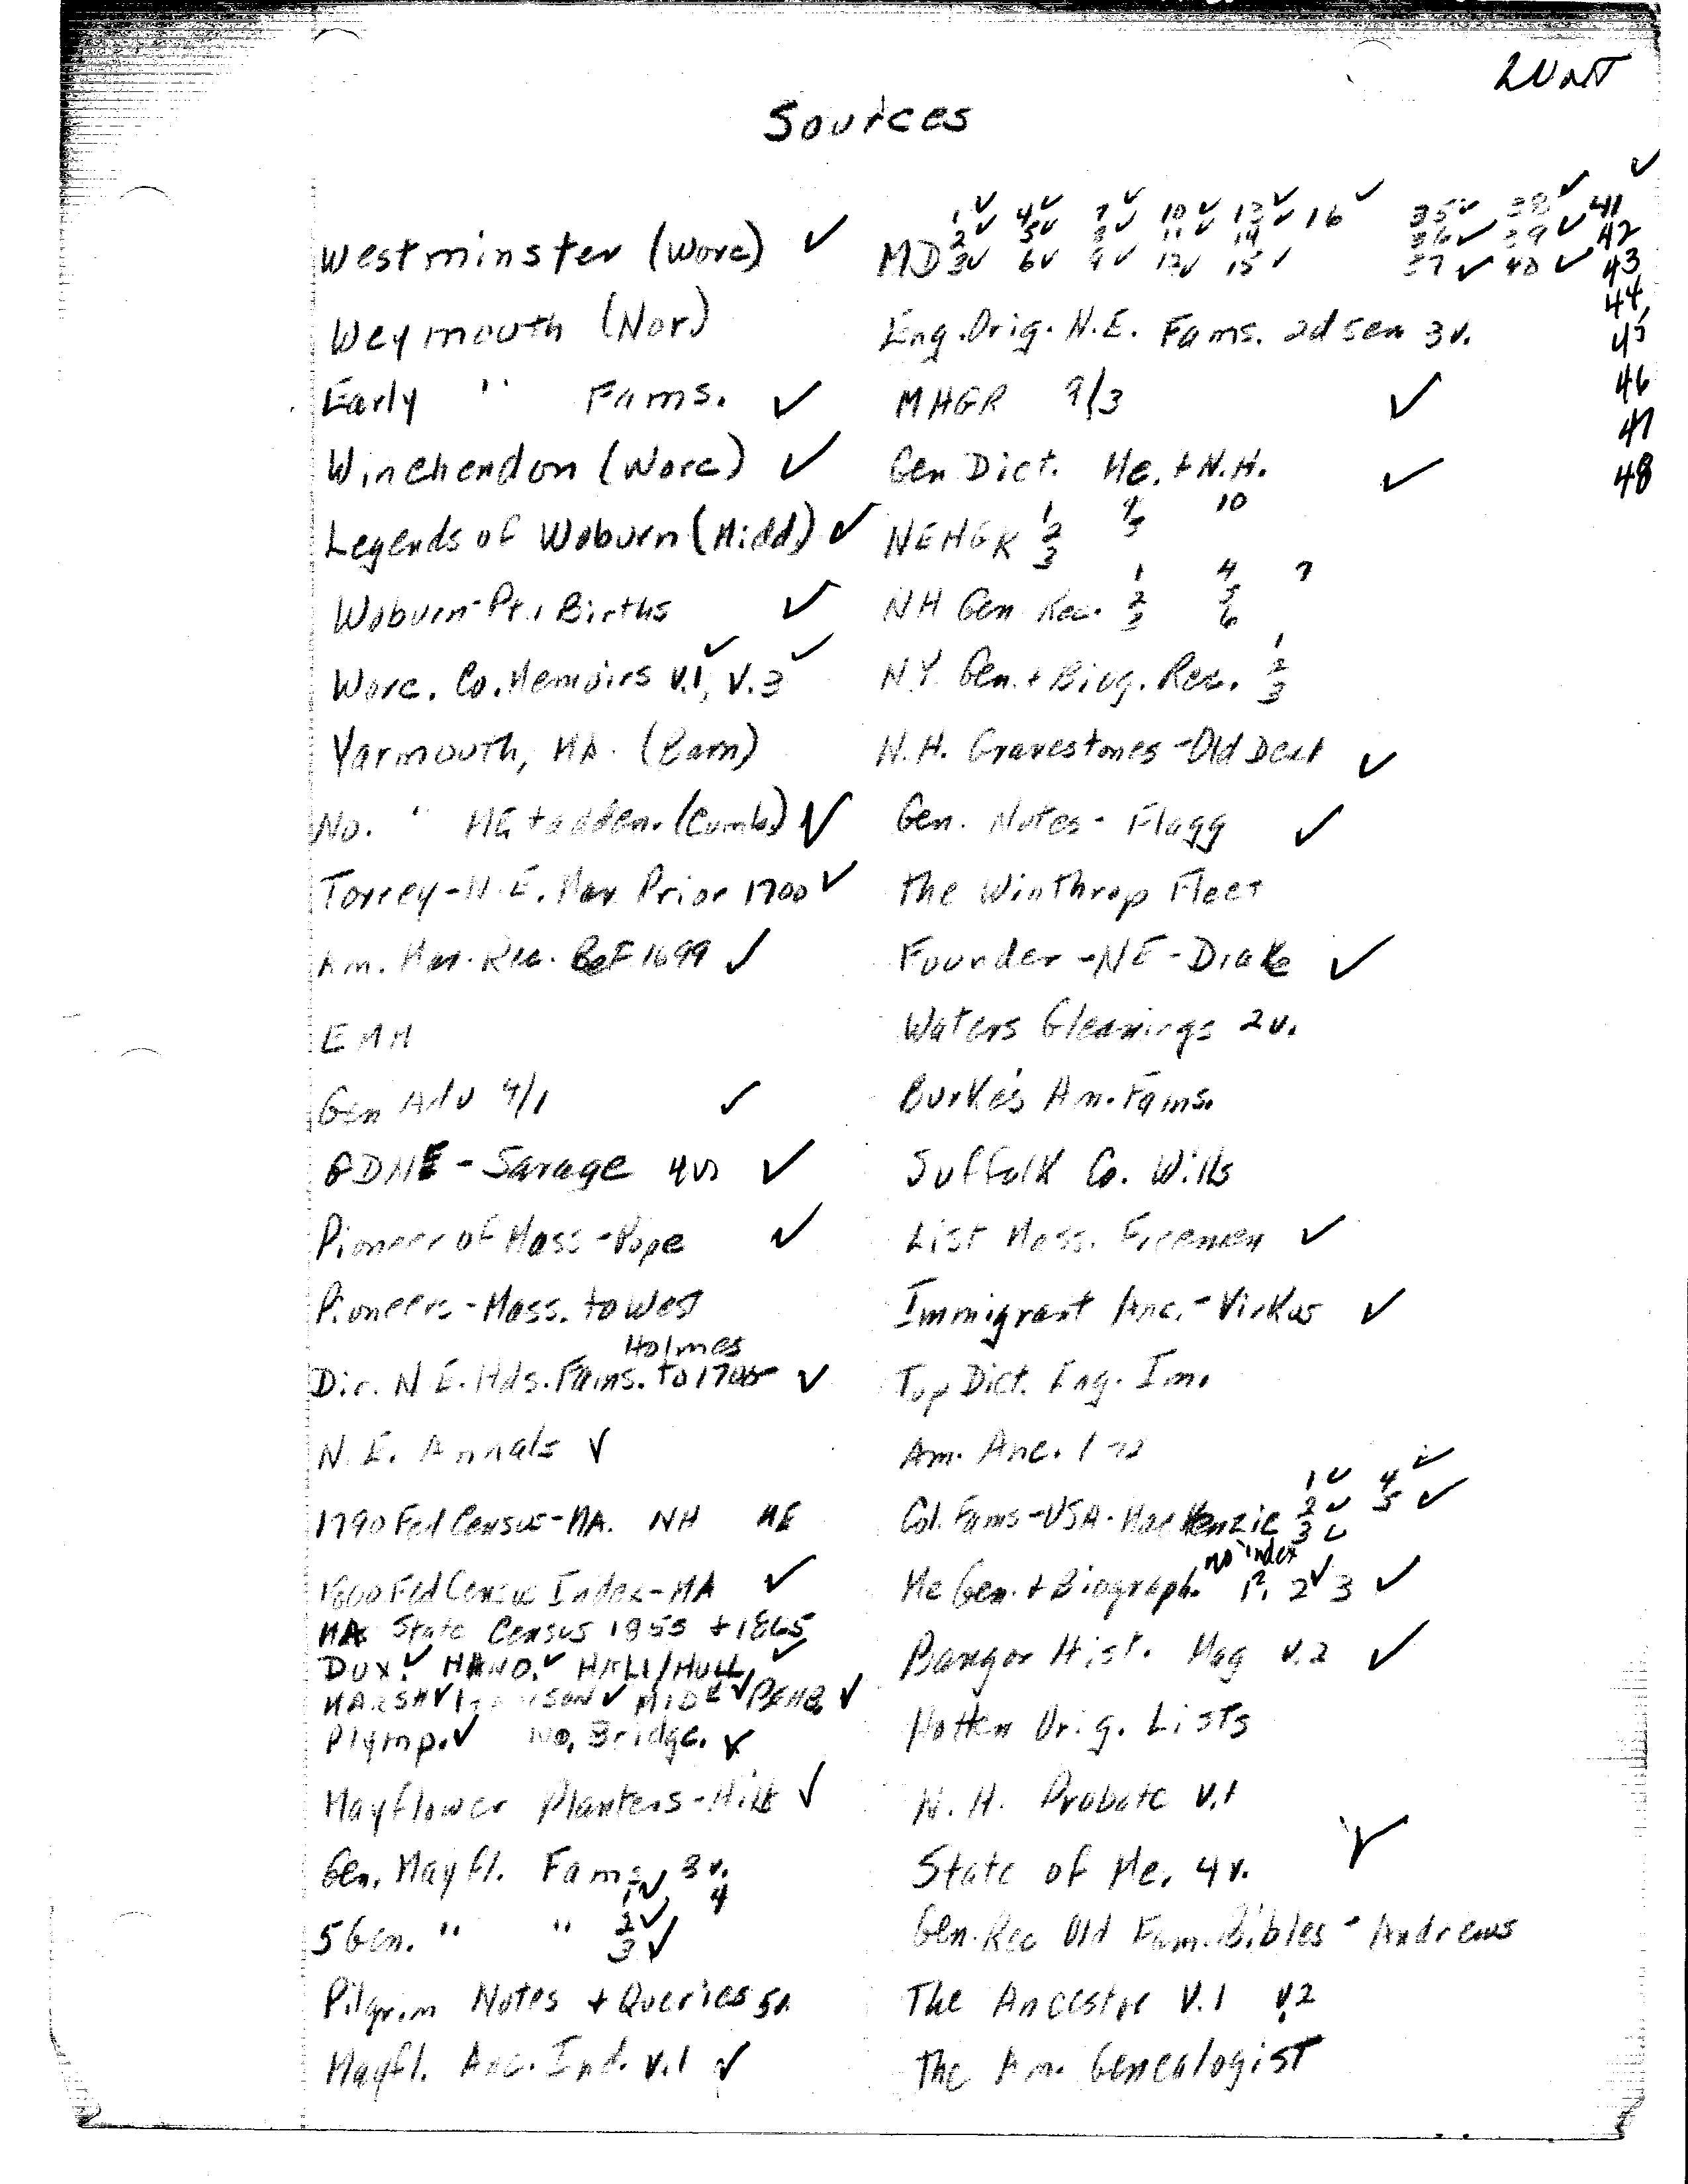 Lunt
Sources
Westminster (Worc) ✓
Weymouth (Nor)
Early " Fams. ✓
Winchendon (Worc) ✓
Legends of Woburn (Midd) ✓
Woburn - Pt. 1 Births ✓
Worc. Co. Memoirs v.1, ✓ v.3 ✓
Yarmouth, MA. (Barn)
No. " ME + adden. (Cumb) ✓
Torrey - N.E. Mar. Prior 1700 ✓
Am. Mar. Rec. Bef 1699 ✓
EMM
Gen Adv 4/1 ✓
GDNE - Savage 4v ✓
Pioneer of Mass - Pope ✓
Pioneers - Mass. to West
Holmes
Dir. N.E. Hds. Fams. to 1700 ✓
N.E. Annals ✓
1790 Fed Census - MA. NH ME
1800 Fed Census Index - MA ✓
MA State Census 1855 + 1865
DUX. ✓ HANO. ✓ HALI/HULL ✓
MARSH ✓ ✓ MIDD ✓ PEMB. ✓
Plymp. ✓ No. Bridge. ✓
Mayflower Planters - Hills ✓
Gen. Mayfl. Fams 3v.
5 Gen. " " 1 ✓ 2 ✓ 3 ✓ 4
Pilgrim Notes + Queries
Mayfl. Anc. Ind. v.1 ✓
1 ✓ 4 ✓ 7 ✓ 10 ✓ 13 ✓ 16 ✓ 35 ✓ 38 ✓ 41 ✓
2 ✓ 5 ✓ 8 ✓ 11 ✓ 14 ✓ 36 ✓ 39 ✓ 42
MD 3 ✓ 6 ✓ 9 ✓ 12 ✓ 15 ✓ 37 ✓ 40 ✓ 43
44
45
46
47
48
Eng. Orig. N.E. Fams. 2d ser 3v.
MHGR 9/3 ✓
Gen Dict. Me. + N.H. ✓
NEHGR 1 2 3 4 5 10
NH Gen Rec. 1 2 3 4 5 6 7
N.Y. Gen. + Biog. Rec. 1 2 3
N.H. Gravestones - Old Deat ✓
Gen. Notes - Flagg ✓
The Winthrop Fleet
Founder - NE - Drake ✓
Waters Gleanings 2v.
Burke's Am. Fams.
Suffolk Co. Wills
List Mass. Freemen ✓
Immigrant Anc. - Virkus ✓
Top Dict. Eng. Im.
Am. Anc.
Col. Fams - USA - MacKenzie 1 ✓ 2 ✓ 3 ✓ 4 ✓ 5 ✓
no index
Me Gen. + Biograph. 1?, 2 ✓ 3 ✓
Bangor Hist. Mag v.2 ✓
Hotten Orig. Lists
N.H. Probate v.1
State of Me. 4v. ✓
Gen. Rec Old Fam. Bibles - Andrews
The Ancestor v.1 v.2
The Am. Genealogist